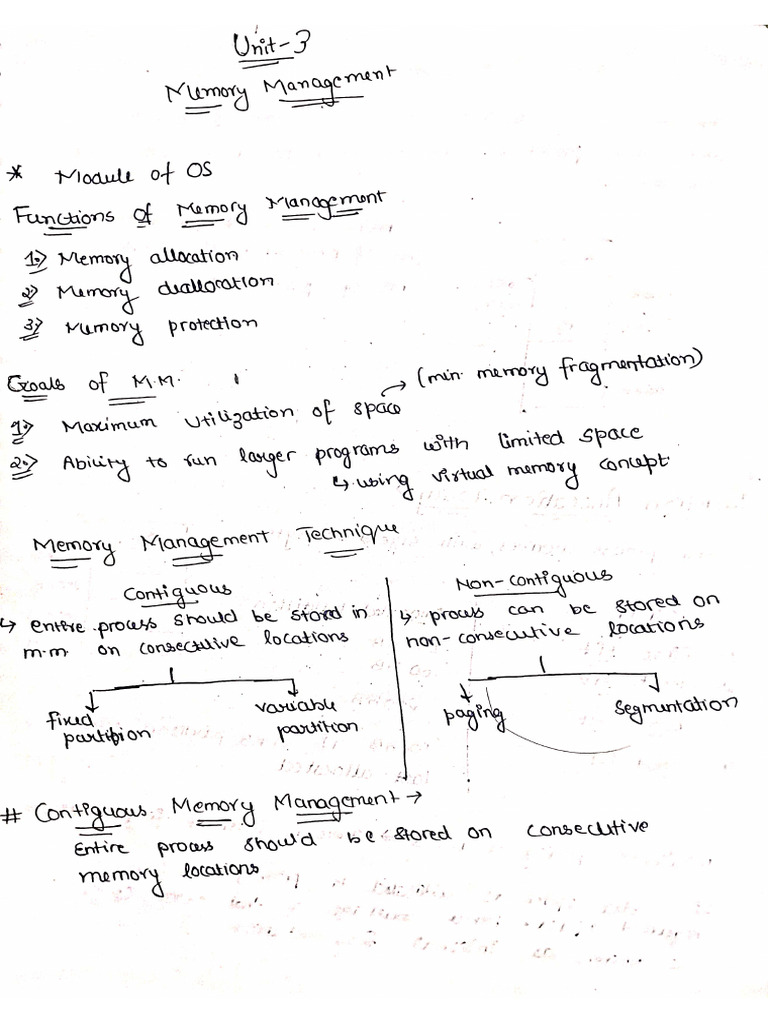 Unit-3
Memory Management
* Module of OS
Functions of Memory Management
1.) Memory allocation
2) Memory deallocation
3) Memory protection
Goals of M.M.
(min. memory fragmentation)
1.) Maximum utilization of space
2.) Ability to run larger programs with limited space
↳ using virtual memory concept.
Memory Management Technique
Contiguous
↳ entire process should be stored in
m.m. on consecutive locations
fixed
partition
variable
partition
Non-contiguous
↳ process can be stored on
non-consecutive locations
paging
segmentation
# Contiguous Memory Management →
Entire process should be stored on consecutive
memory locations